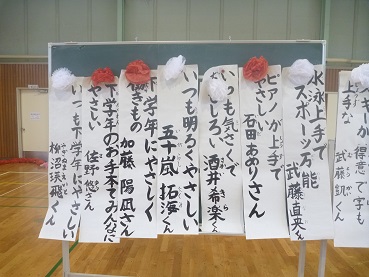 スキーが得意で字も
上手な
武藤凱くん
水泳上手で
スポーツ万能
武藤直央さん
ピアノが上手で
やさしい
石田あめりさん
いつも気さくで
おもしろい
酒井希楽くん
きら
いつも明るくやさしい
五十嵐拓海くん
下学年にやさしく
働きもの
加藤陽凪さん
下学年のお手本でみんなに
やさしい
佐野悠さん
いつも下学年にやさしい
くん